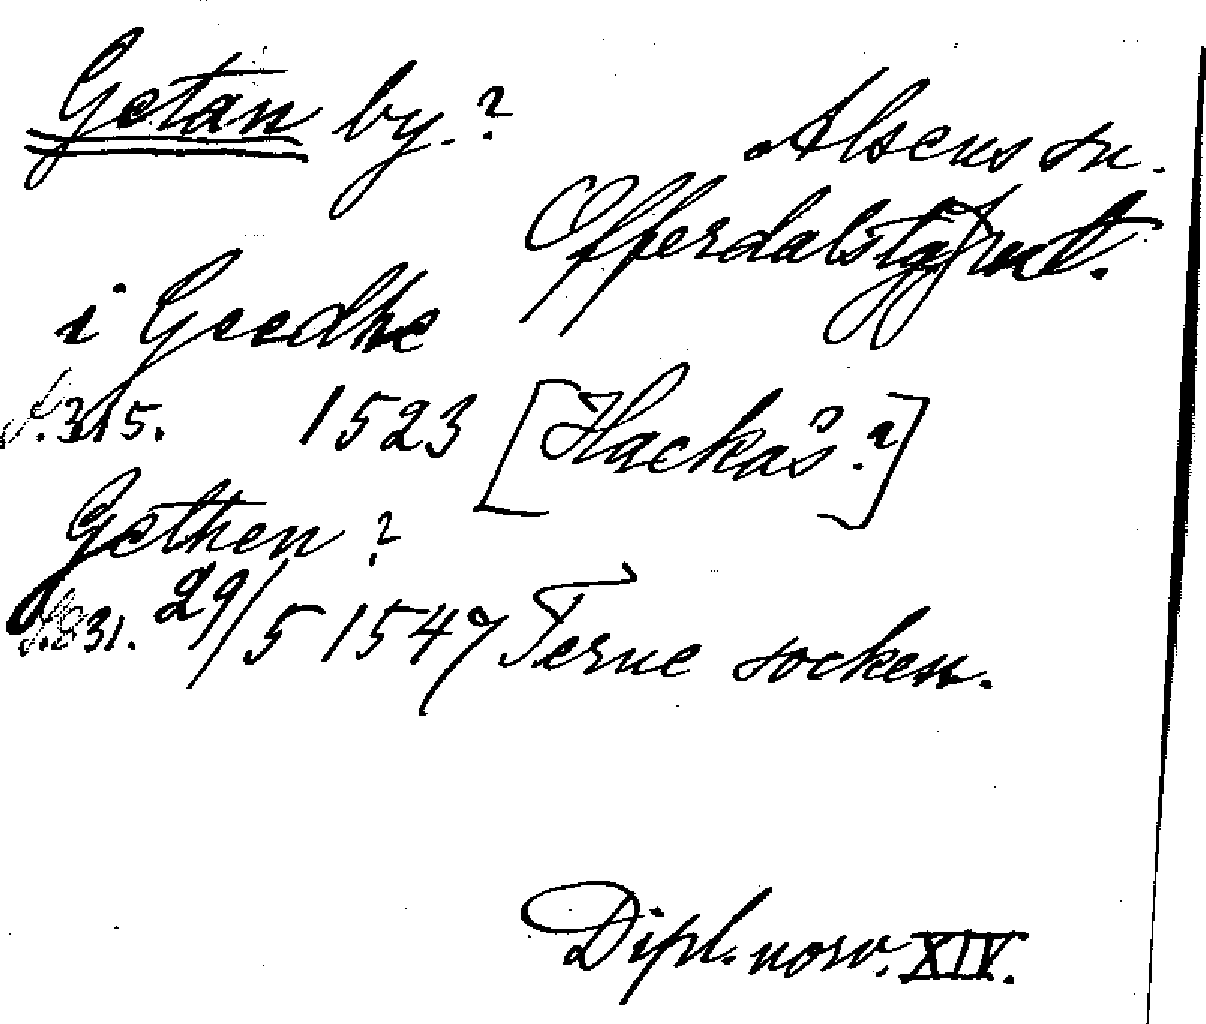 Getan by.?
Alsens sn.
Offerdals tg, Jmtl.
i Geedhe
s. 315. 1523 [Hackås?]
Gethen?
s. 831. 29/5 1547 Ferne socken.
Dipl. norv. XIV.